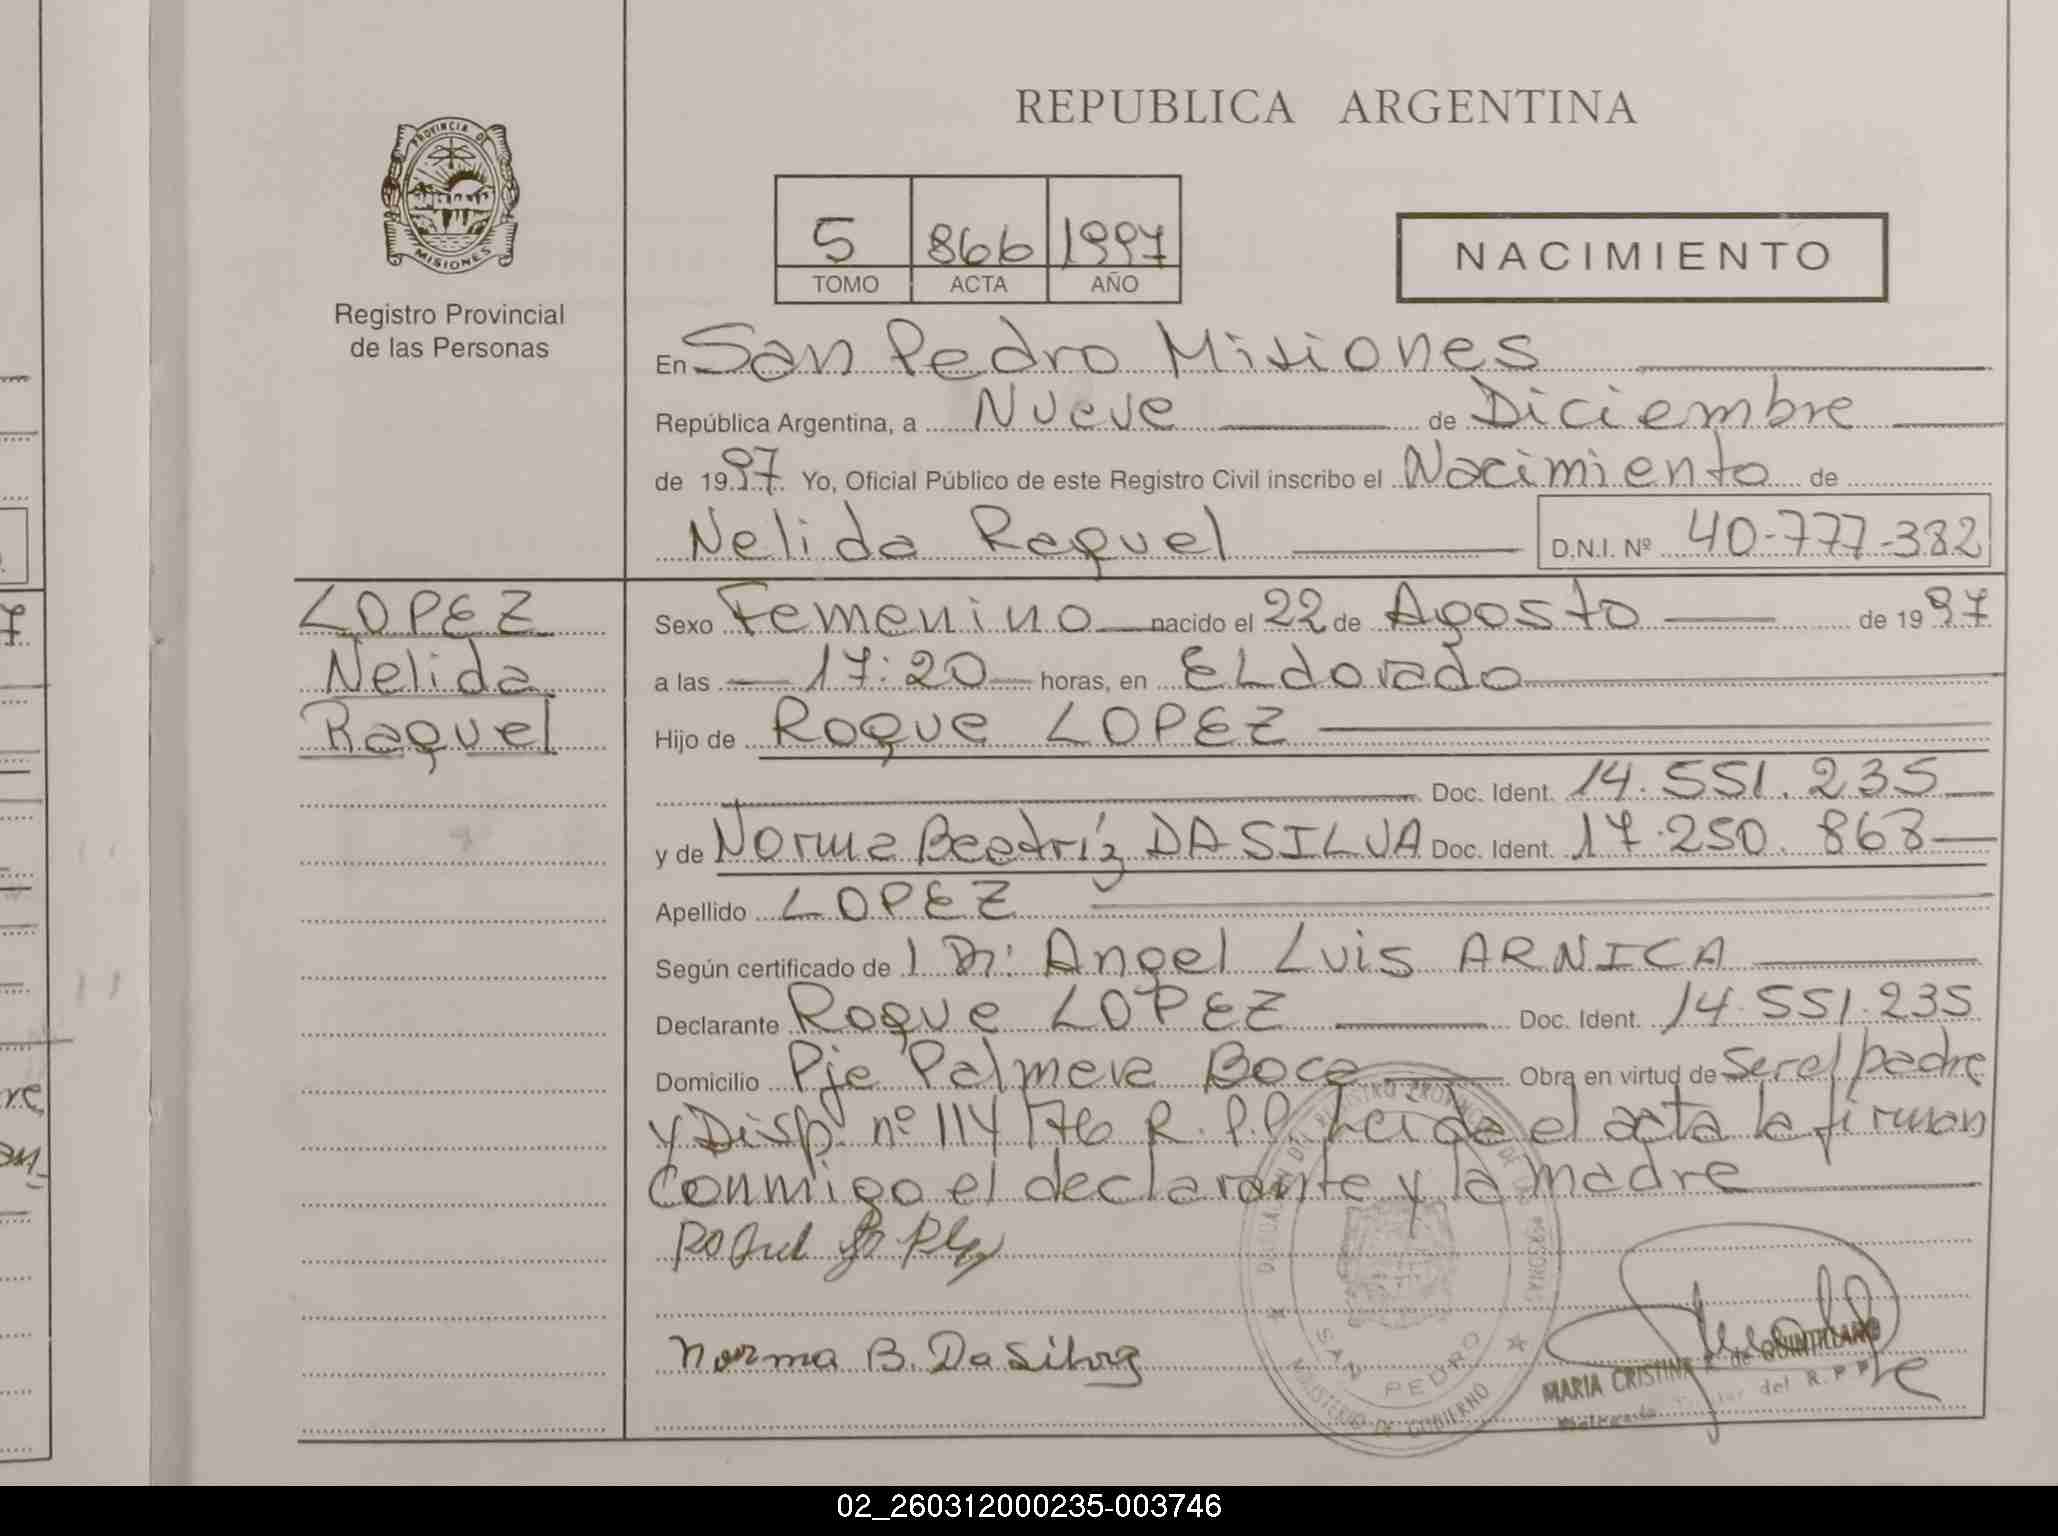 REPUBLICA ARGENTINA
PROVINCIA DE
MISIONES
Registro Provincial
de las Personas
5 866 1997
TOMO ACTA AÑO
NACIMIENTO
En San Pedro Misiones
República Argentina, a Nueve de Diciembre
de 1997 Yo, Oficial Público de este Registro Civil inscribo el Nacimiento de
Nelida Raquel D.N.I. Nº 40-777-382
LOPEZ
Nelida
Raquel
Sexo Femenino nacido el 22 de Agosto de 1997
a las 17:20 horas, en ELdorado
Hijo de Roque LOPEZ
Doc. Ident. 14.551.235
y de Norma Beatríz DA SILVA Doc. Ident. 17.250.868
Apellido LOPEZ
Según certificado de 1 Dr: Angel Luis ARNICA
Declarante Roque LOPEZ Doc. Ident. 14.551.235
Domicilio Pje Palmera Boca Obra en virtud de Ser el padre
y Disp. nº 114/76 R.P.P. Leida el acta la firman
conmigo el declarante y la madre
Norma B. Da Silva
SAN PEDRO
MINISTERIO DE GOBIERNO
MARIA CRISTINA de QUINTILLANO
del R.P.P.
02_260312000235-003746